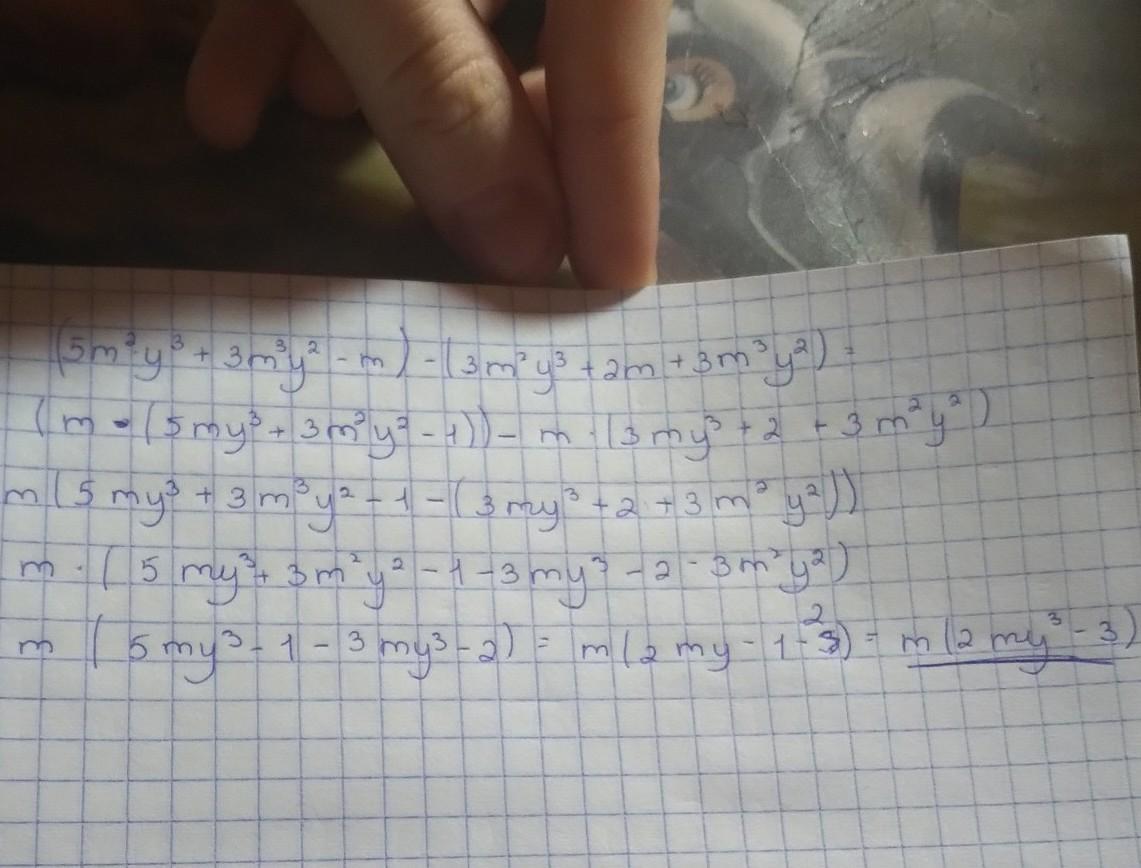 (5m²y³ + 3m³y² - m) - (3m²y³ + 2m + 3m³y²) =
(m · (5my³ + 3m²y² - 1)) - m · (3my³ + 2 + 3m²y²)
m(5my³ + 3m³y² - 1 - (3my³ + 2 + 3m²y²))
m · (5my³ + 3m²y² - 1 - 3my³ - 2 - 3m²y²)
m (5my³ - 1 - 3my³ - 2) = m(2my - 1 - 2) = m(2my³ - 3)